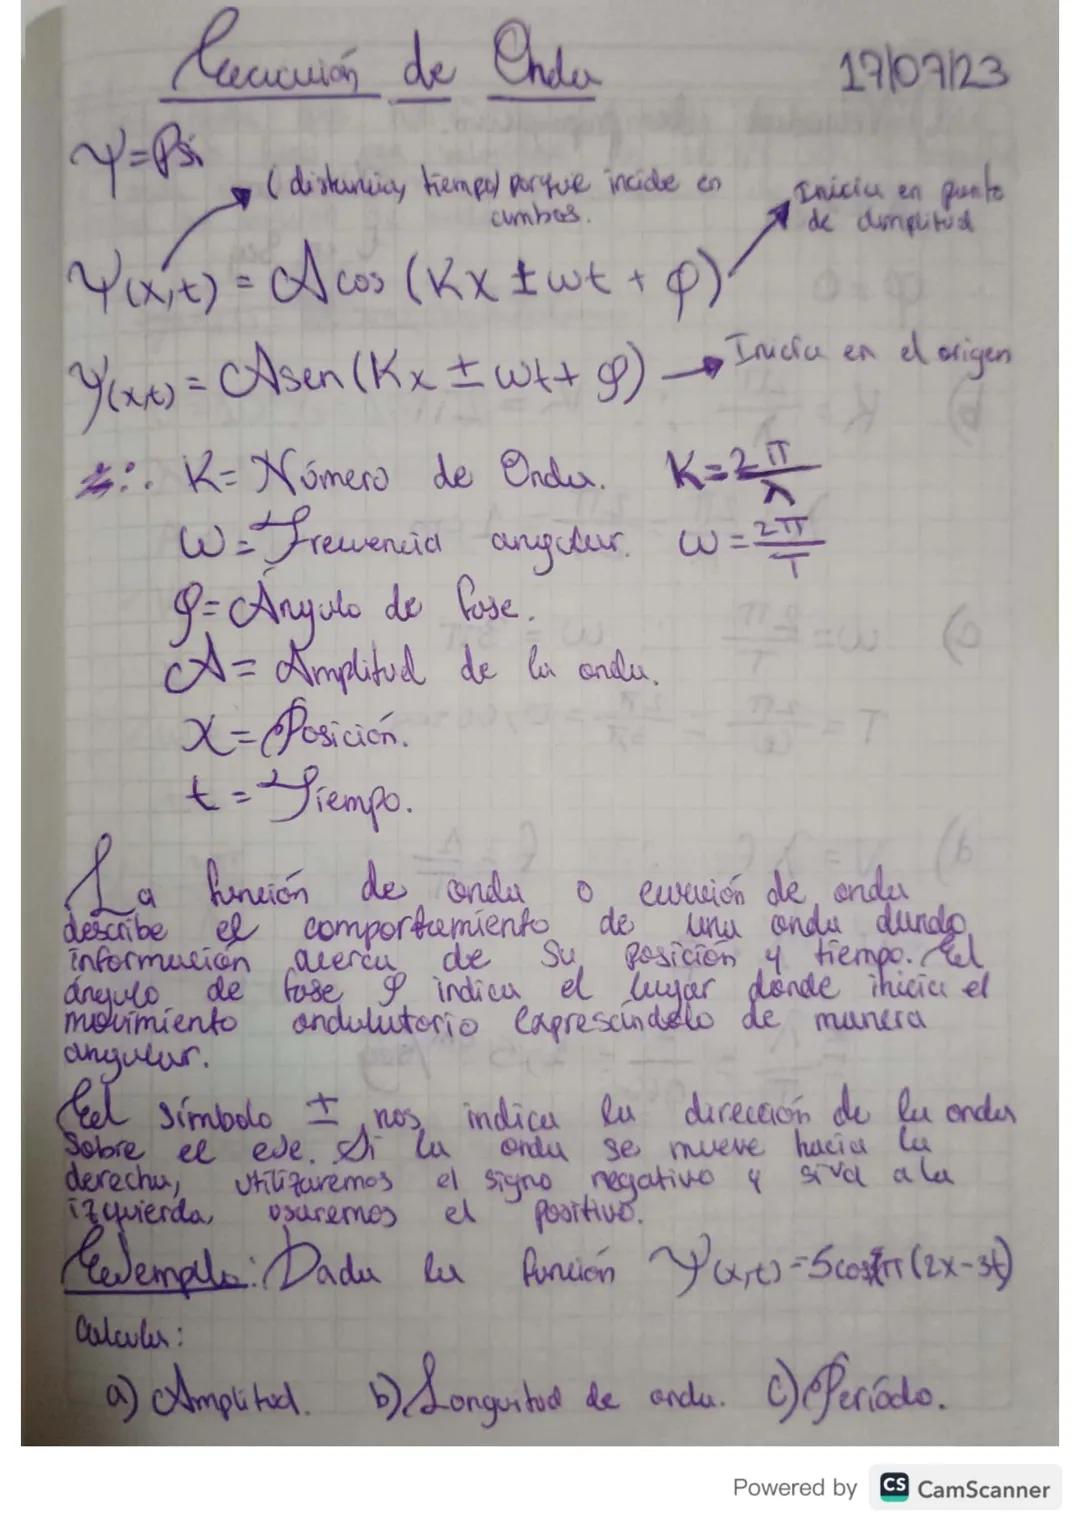 Ecuación de Onda 17/07/23
Ψ=Psi
(distancia, tiempo) porque incide en ambos.
Inicia en punto de amplitud
Ψ(x,t) = A cos (Kx ± wt + φ)
Ψ(x,t) = A sen (Kx ± wt + φ) → Inicia en el origen
∴ K= Número de Onda. K=2π/λ
w = Frecuencia angular. w = 2π/T
φ= Ángulo de fase.
A = Amplitud de la onda.
X = Posición.
t = Tiempo.
La función de onda o ecuación de onda
describe el comportamiento de una onda dando
información acerca de su posición y tiempo. El
ángulo de fase φ indica el lugar donde inicia el
movimiento ondulatorio expresándolo de manera
angular.
El símbolo ± nos indica la dirección de la onda
sobre el eje. Si la onda se mueve hacia la
derecha, utilizaremos el signo negativo y si va a la
izquierda, usaremos el positivo.
Ejemplo: Dada la función Ψ(x,t)=5cosπ(2x-3t)
Calcula:
a) Amplitud. b) Longuitud de onda. c) Período.
Powered by CS CamScanner